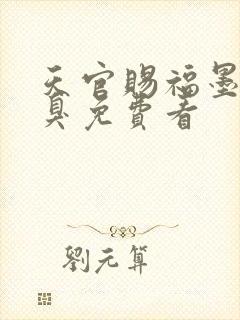 天官賜福墨
臭免費看
劉元算